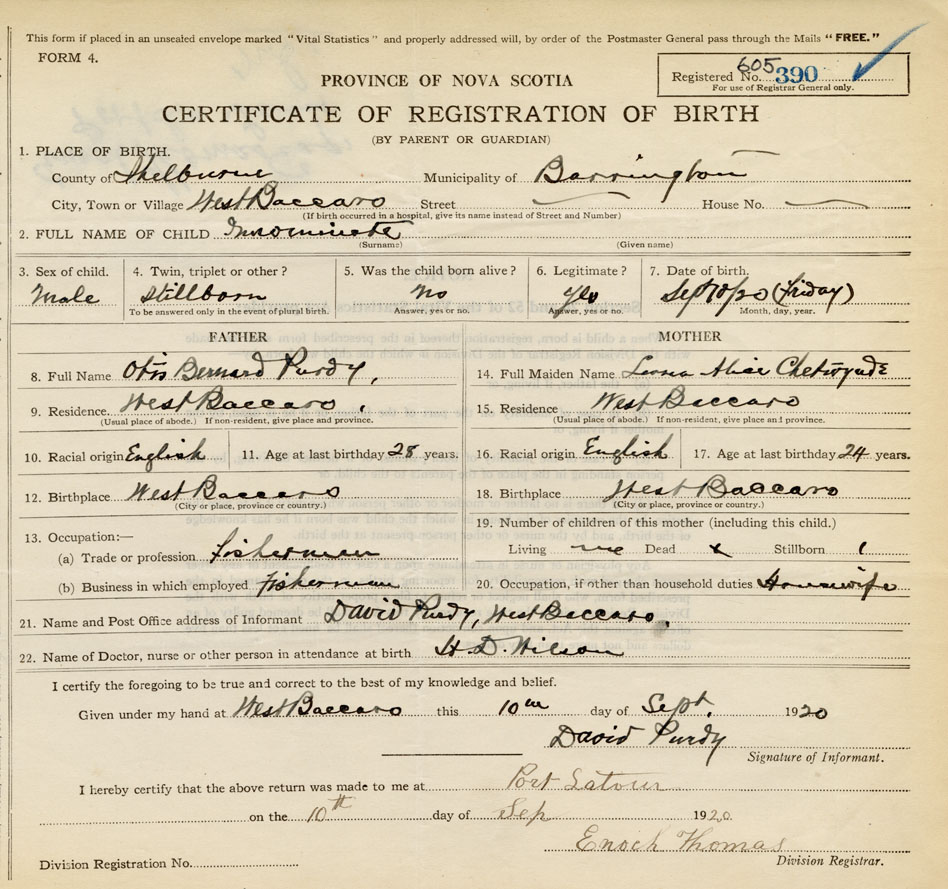 This form if placed in an unsealed envelope marked "Vital Statistics" and properly addressed will, by order of the Postmaster General pass through the Mails "FREE."
FORM 4.
605
Registered No. 390
For use of Registrar General only.
PROVINCE OF NOVA SCOTIA
CERTIFICATE OF REGISTRATION OF BIRTH
(BY PARENT OR GUARDIAN)
1. PLACE OF BIRTH.
County of Shelburne Municipality of Barrington
City, Town or Village West Baccaro Street House No.
(If birth occurred in a hospital, give its name instead of Street and Number)
2. FULL NAME OF CHILD Innominate
(Surname) (Given name)
3. Sex of child. 4. Twin, triplet or other? 5. Was the child born alive? 6. Legitimate? 7. Date of birth.
Male Stillborn No Yes Sept 10/20 (Friday)
To be answered only in the event of plural birth. Answer, yes or no. Answer, yes or no. Month, day, year.
FATHER MOTHER
8. Full Name Otis Bernard Purdy, 14. Full Maiden Name Alice Chetwynde
9. Residence West Baccaro, 15. Residence West Baccaro
(Usual place of abode.) If non-resident, give place and province. (Usual place of abode.) If non-resident, give place and province.
10. Racial origin English 11. Age at last birthday 28 years. 16. Racial origin English 17. Age at last birthday 24 years.
12. Birthplace West Baccaro 18. Birthplace West Baccaro
(City or place, province or country.) (City or place, province or country.)
19. Number of children of this mother (including this child.)
13. Occupation:—
(a) Trade or profession fisherman Living Dead x Stillborn 1
(b) Business in which employed fisherman 20. Occupation, if other than household duties Housewife
21. Name and Post Office address of Informant David Purdy, West Baccaro.
22. Name of Doctor, nurse or other person in attendance at birth H. D. Wilson
I certify the foregoing to be true and correct to the best of my knowledge and belief.
Given under my hand at West Baccaro this 10th day of Sept. 1920
David Purdy
Signature of Informant.
I hereby certify that the above return was made to me at Port Latour
on the 10th day of Sep 1920.
Enoch Thomas
Division Registration No. Division Registrar.